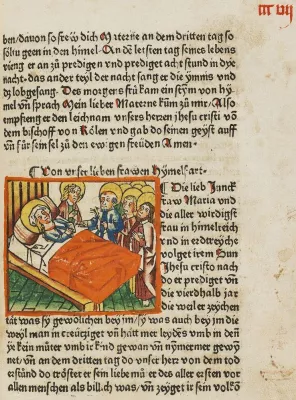 ben/davon so frew dich Materne an dem dritten tag so
soltu geen in den himel. An dē letsten tag seines lebens
vieng er an zu predigen vnd prediget acht stund in dye
nacht. das ander teyl der nacht sang er die ymnis vnd
dz lobgesang. Des morgens frů kam ein stym von hy
mel vn̄ sprach Mein lieber Materne kūm zů mir/Also
empfieng er den leichnam vnsers herzen jhesu cristi vō
dem bischoff von Kölen vnd gab do seinen geyst auff
vn̄ fůr sein sel zů den ewgen freüden Amen.
Von vnser lieben frawen Hymelfart.
Die lieb Junck
fraw Maria vnd
die aller wirdigst
fraw in himelreich
vnd in erdtreyche
volget irem Sun
Jhesu cristo nach
do er prediget vn̄
die vierdhalb jar
die weil er zeychen
tät was sy gewölichen bey jm/sy was auch bey jm die
weyl man in creütziget vn̄ hätt mer leydēs vmb in denn
ye kein můter vmb ir kind gewan vn̄ nymermer gewy
net/vn̄ an dem dritten tag do vnser herr von dem tod
erstůnd do tröstet er sein lieb mů er des aller ersten vor
allen menschen als billich was/vn̄ zeyget ir sein volkō